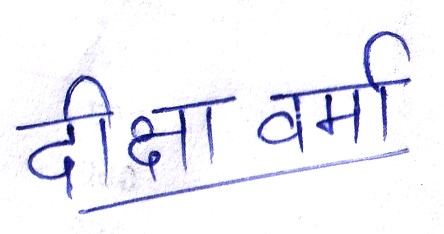 दीक्षा वर्मा